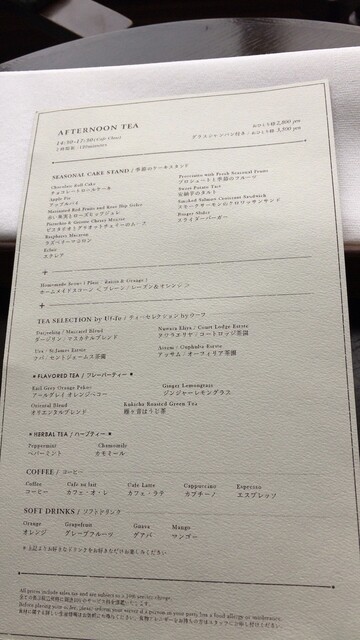 AFTERNOON TEA
14:30-17:30 (Cafe Close)
お ひとり様 2,800 yen
グラスシャンパン付き / お ひとり様 3,500 yen
SEASONAL CAKE STAND / 季節のケーキスタンド
Chocolate Roll Cake
チョコレートロールケーキ
Apple Pie
アップルパイ
Marinated Red Fruits and Rose Hip Gelee
赤い果実とローズヒップジュレ
Pistachio & Griotte Cherry Mousse
ピスタチオとグリオットチェリーのムース
Raspberry Macaron
ラズベリーマカロン
Eclair
エクレア
Prosciutto with Fresh Seasonal Fruits
プロシュートと季節のフルーツ
Sweet Potato Tart
安納芋のタルト
Smoked Salmon Croissant Sandwich
スモークサーモンのクロワッサンサンド
Burger Slider
スライダーバーガー
Homemade Scone ( Plain / Raisin & Orange )
ホームメイドスコーン ＜ プレーン / レーズン＆オレンジ ＞
TEA SELECTION by Uf-fu / ティーセレクション by ウーフ
Darjeeling / Muscatel Blend
ダージリン / マスカテルブレンド
Nuwara Eliya / Court Lodge Estate
ヌワラエリヤ / コートロッジ茶園
Uva / St.James Estate
ウバ / セントジェームス茶園
Assam / Orphulia Estate
アッサム / オーフィリア茶園
★ FLAVORED TEA / フレーバーティー ★
Earl Grey Orange Pekoe
アールグレイ オレンジペコー
Ginger Lemongrass
ジンジャーレモングラス
Oriental Blend
オリエンタルブレンド
Roasted Green Tea
ほうじ茶
★ HERBAL TEA / ハーブティー ★
Peppermint
ペパーミント
Chamomile
カモミール
COFFEE / コーヒー
Coffee Cafe au lait Cafe Latte Cappuccino Espresso
コーヒー カフェ・オ・レ カフェ・ラテ カプチーノ エスプレッソ
SOFT DRINKS / ソフトドリンク
Orange Grapefruit Guava Mango
オレンジ グレープフルーツ グアバ マンゴー
＊上記よりお好きなドリンクをお好きなだけお楽しみください
All prices include sales tax and are subject to a 10% service charge.
Before placing your order, please inform your server if a person in your party has a food allergy or intolerance.